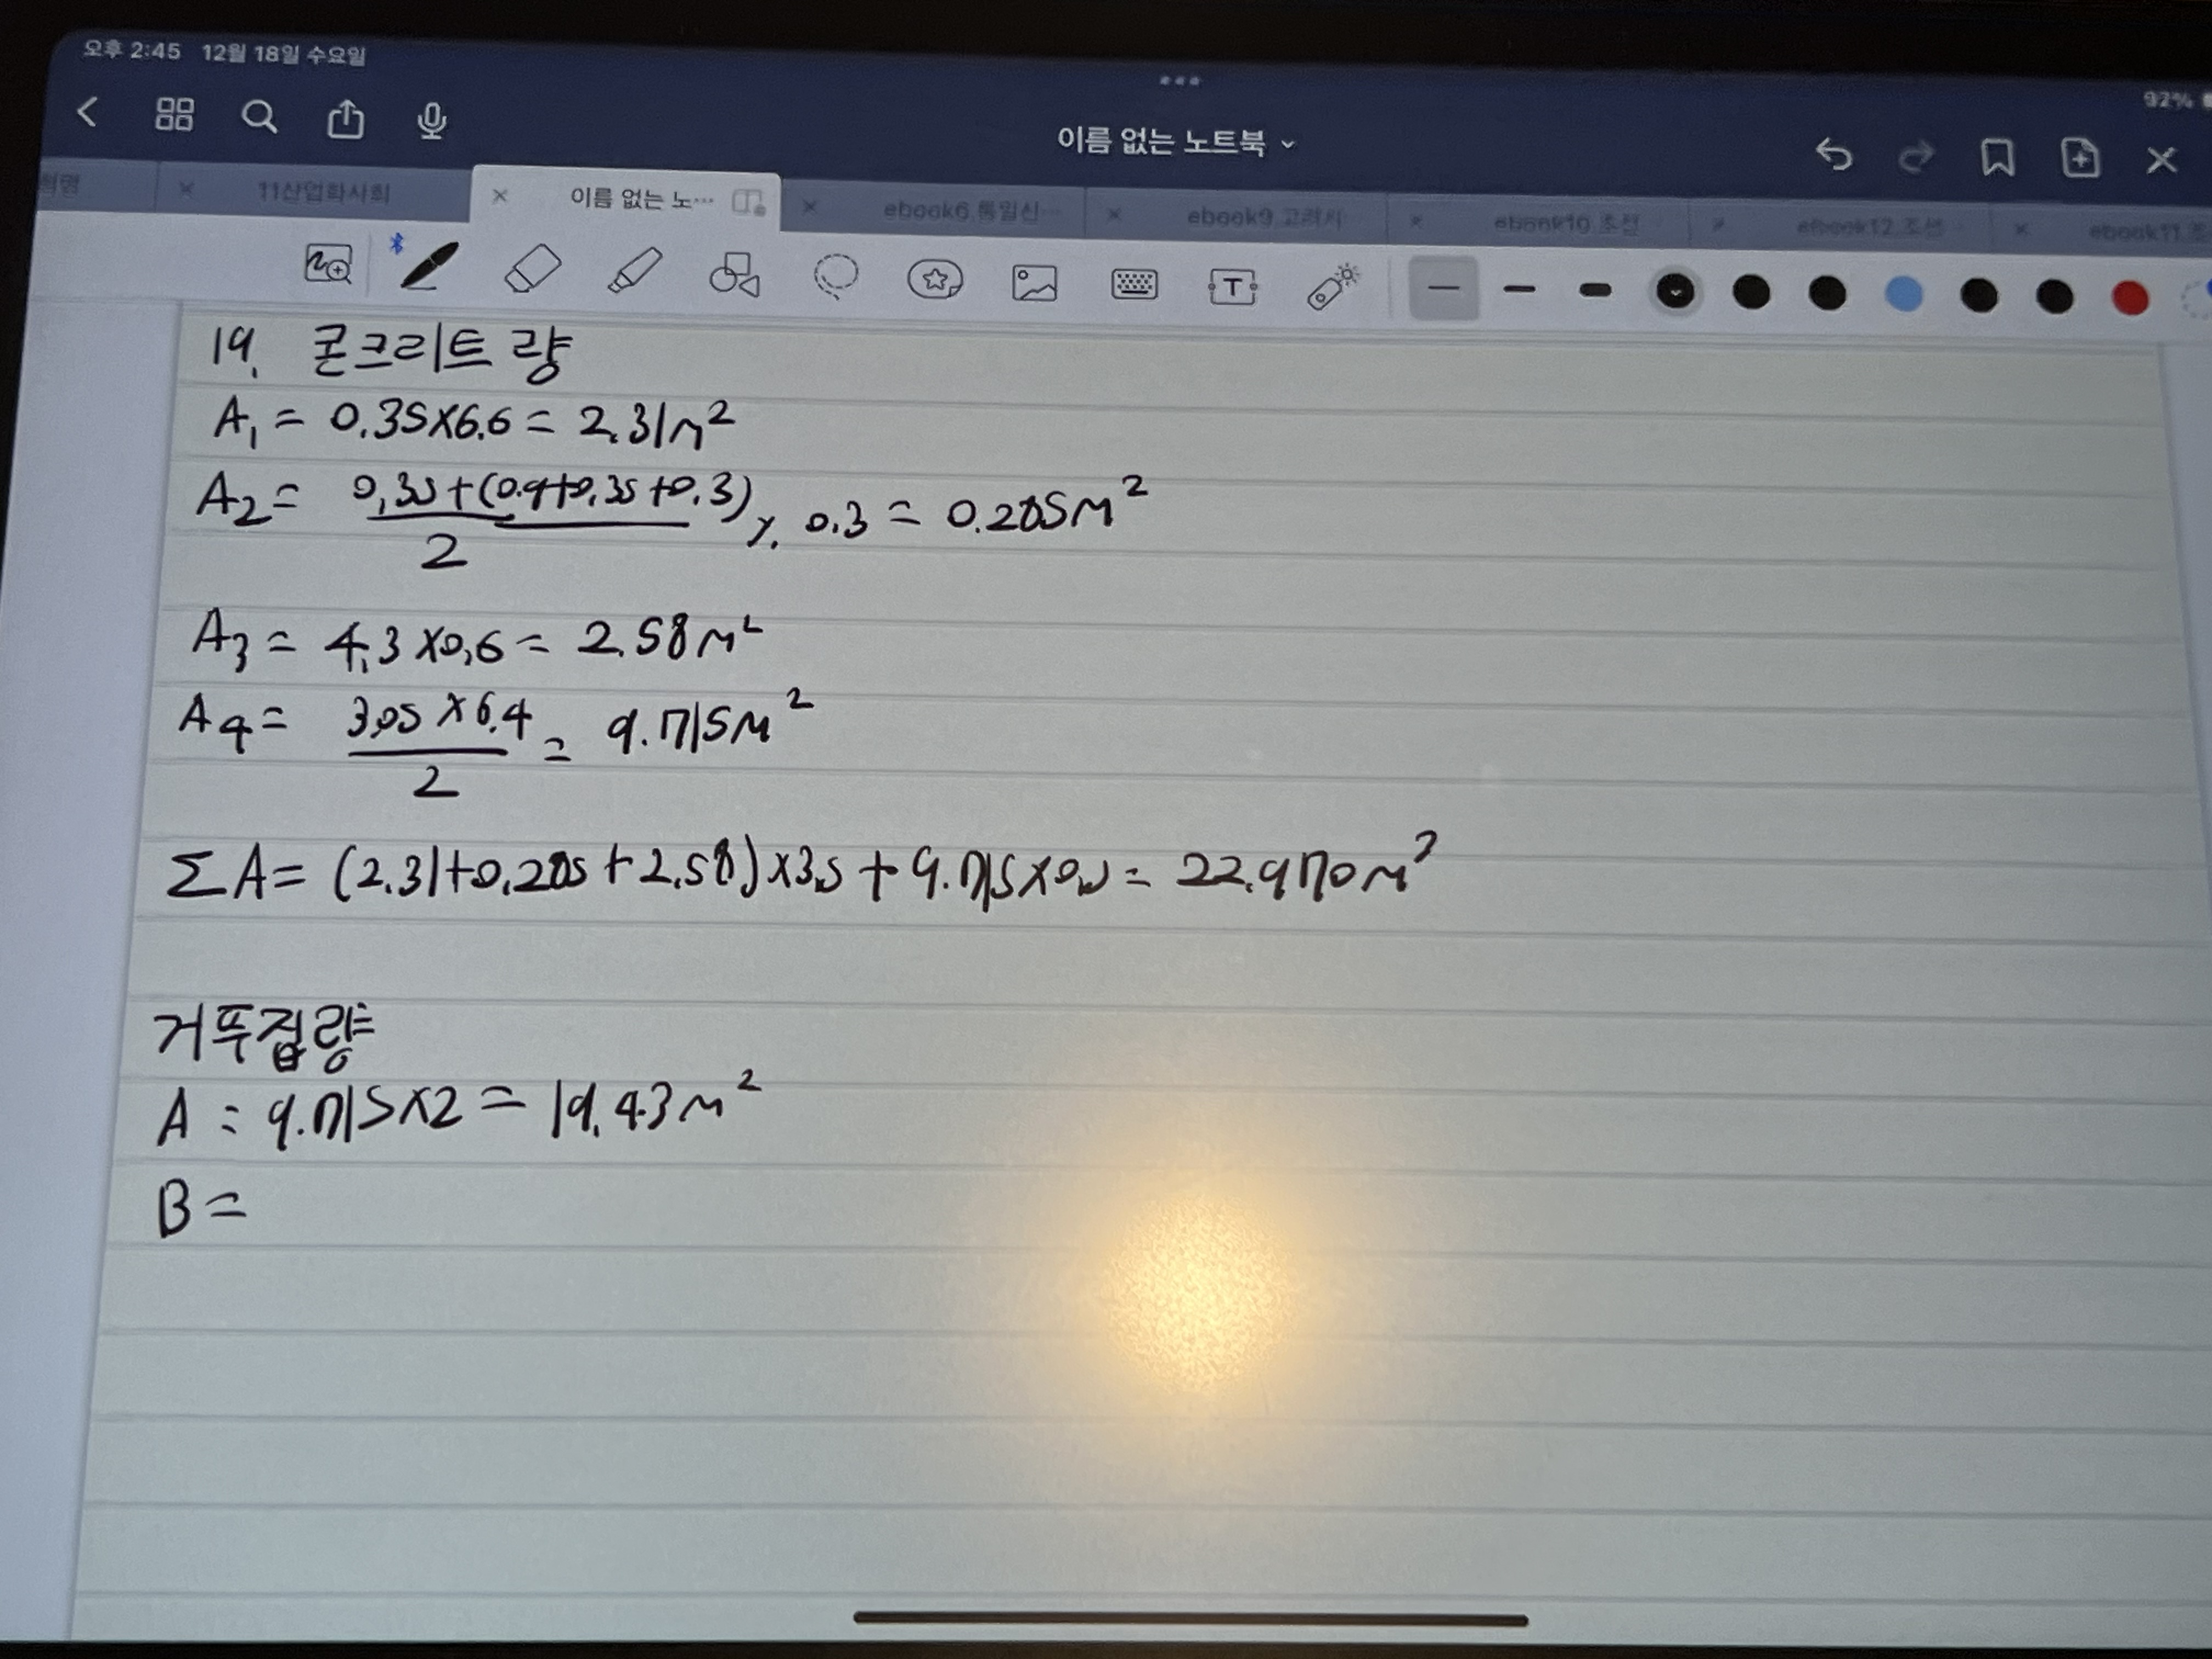 오후 2:45 12월 18일 수요일
92%
이름 없는 노트북
혁명
11산업화사회
이름 없는 노…
ebook6.통일신…
ebook9.고려시
ebook10.조선
ebook12.조선
ebook11.조
T
19. 콘크리트 량
A₁ = 0.35×6.6 = 2.31m²
A₂ = (0.35+(0.9+0.35+0.3))/2 × 0.3 = 0.285m²
A₃ = 4.3×0.6 = 2.58m²
A₄ = (3.05×6.4)/2 = 9.715m²
ΣA = (2.31+0.285+2.58)×3.5 + 9.715×0.5 = 22.970m³
거푸집량
A = 9.715×2 = 19.43m²
B =